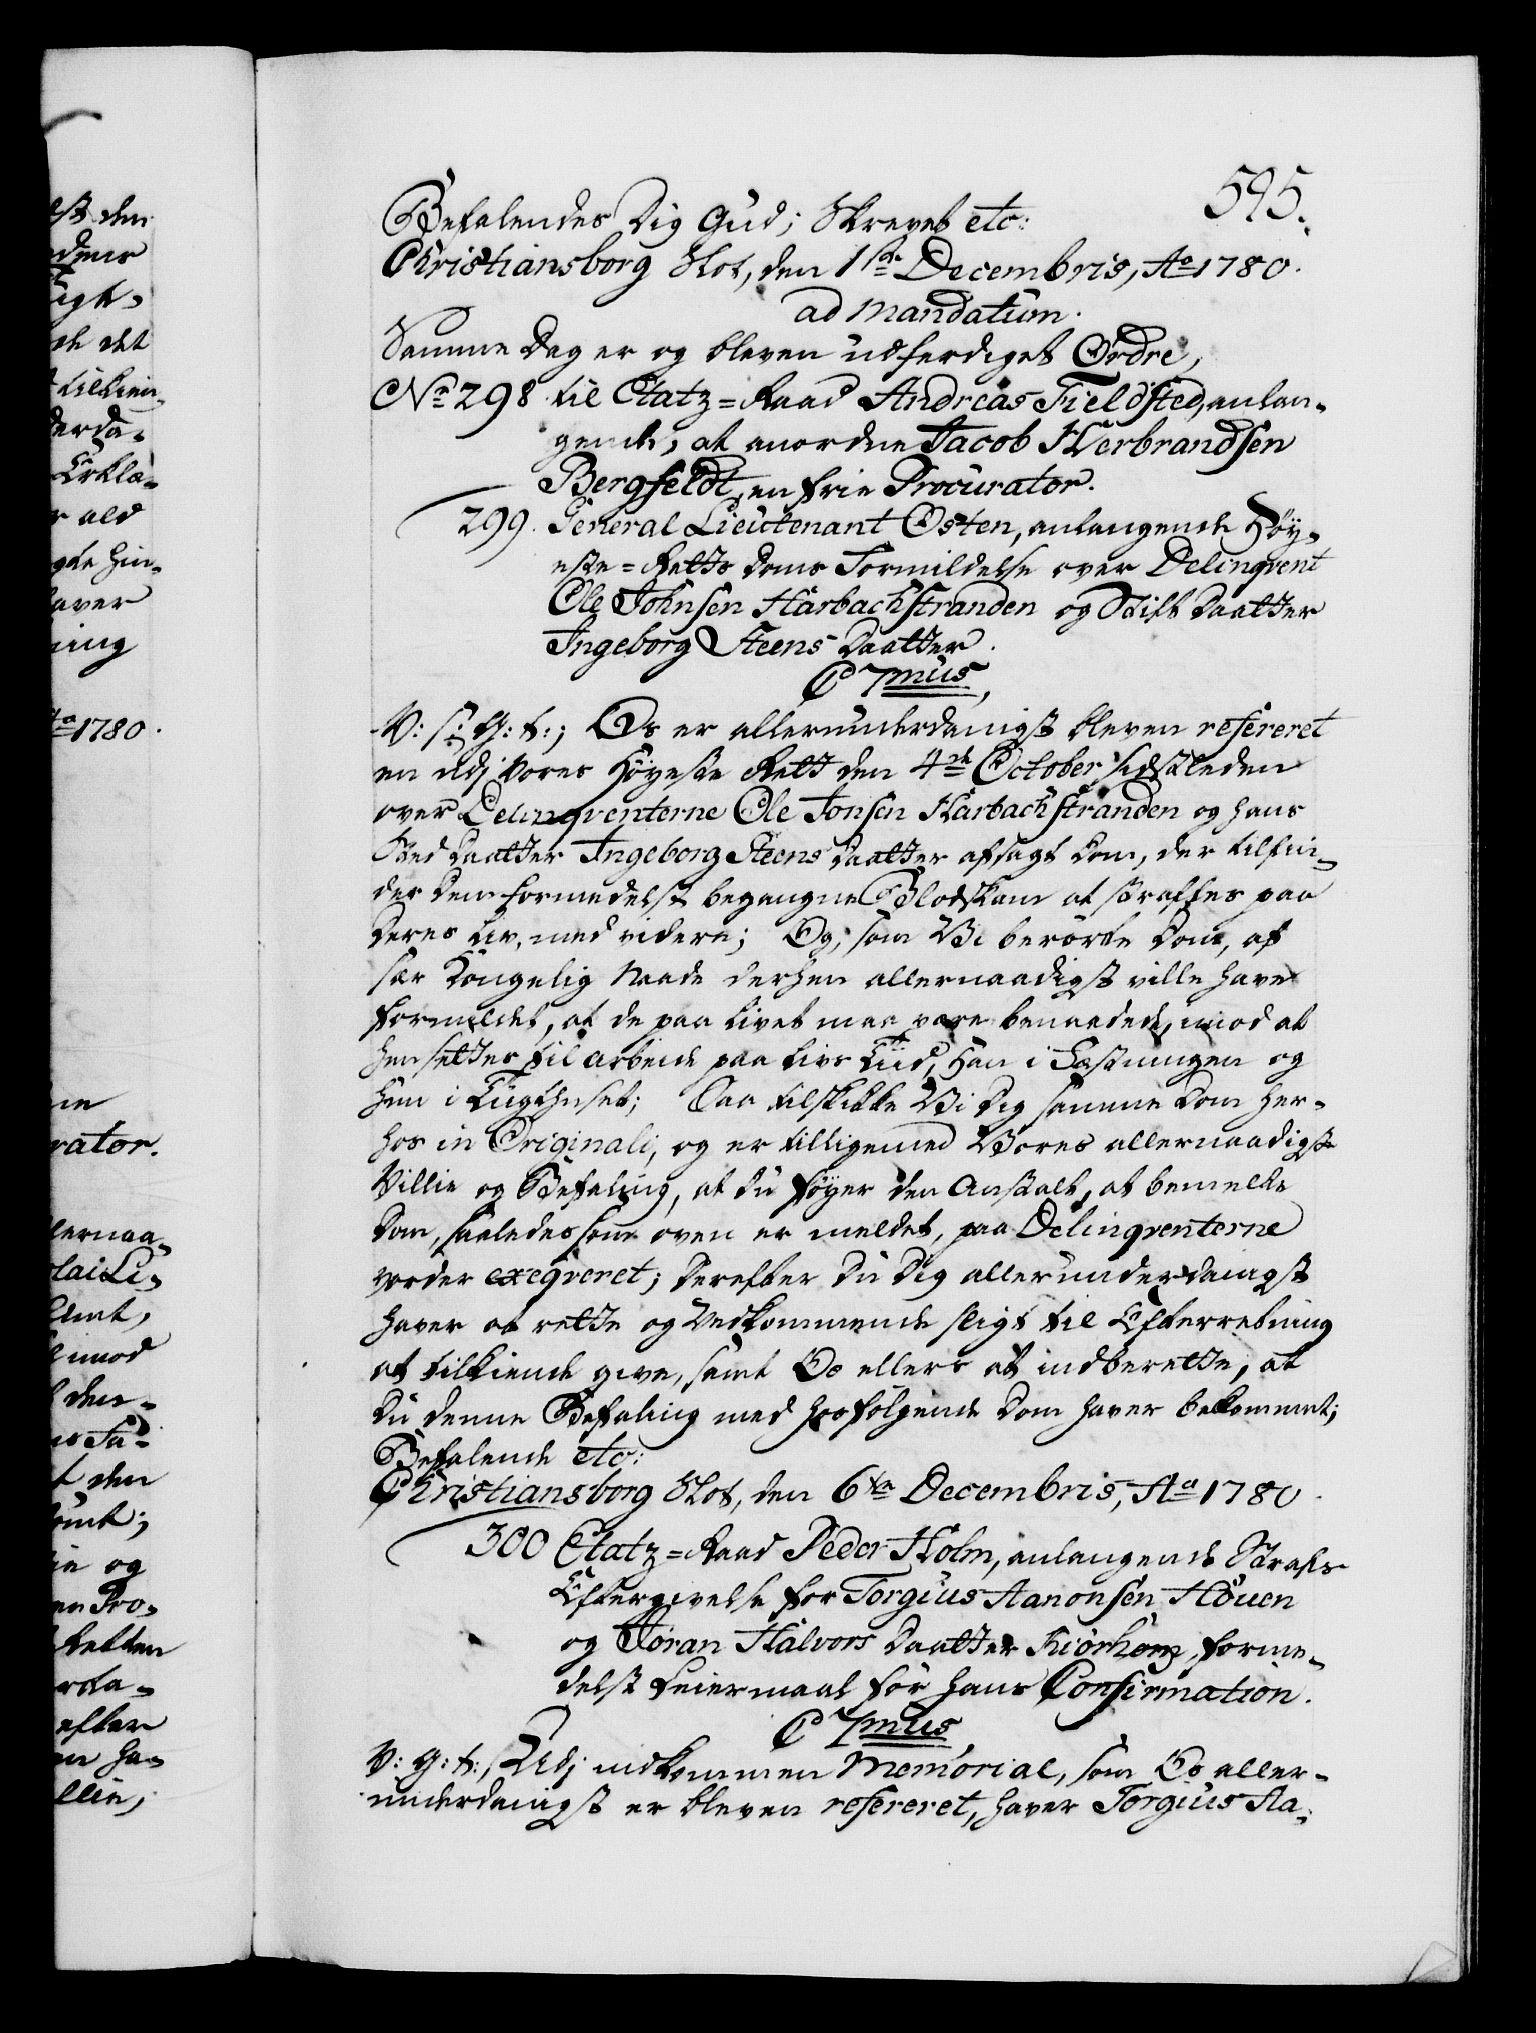 595.
Befalendes Dig Gud; Skrevet etc:
Christiansborg Slot, den 1ste Decembris, Ao 1780.
ad mandatum.
Samme Dag er og bleven udferdiget Ordre,
No 298 til Etatz=Raad Andreas Fieldsted, anlan-
gende, at anordne Jacob Herbrandsen
Bergfeldt, en frie Procurator.
299. General Lieutenant Osten, anlangende Høy-
este=Retts Doms Formildelse over Delinqvent
Ole Johnsen Harbachstranden og Stift Daatter
Ingeborg Steens Daatter.
C 7mus,
V: s: G: t:; Os er allerunderdanigst bleven refereret
en udj Vores Høyeste Rett den 4de October sidstleden
over Delinqventerne Ole Jonsen Harbachstranden og hans
Sted Daatter Ingeborg Steens Daatter afsagt Dom, der tilfin-
der Dem formedelst begangne Blodskam at straffes paa
Deres Liv, med videre; Og, som Vi berørte Dom, af
sær Kongelig Naade derhen allernaadigst ville have
formildet, at de paa Livet maa være benaadede, mod at
hensettes til Arbeide paa Livs Tiid, Han i Fæstningen og
Hun i Tugthuset; Saa tilskikke Vi Dig samme Dom her-
hos in Originali, og er tilligemed Vores allernaadigste
Villie og Befaling, at du føyer den Anstalt, at bemelte
Dom, saaledes som oven er meldet, paa Delinqventerne
vorder exeqveret; Derefter Du Dig allerunderdanigst
haver at rette og Vedkommende sligt til Efterretning
at tilkiende give, samt Os ellers at indberette, at
Du denne Befaling med hosfølgende Dom haver bekommet;
Befalende etc:
Christiansborg Slot, den 6te Decembris, Ao 1780.
300 Etatz=Raad Peder Holm, anlangende Strafs
Eftergivelse for Torgius Aanonsen Houen
og Joran Halvors Daatter Kiörhom, forme-
delst Leiermaal før hans Confirmation.
C 7mus
V: G: t:, Udj indkommen Memorial, som Os aller-
underdanigst er bleven refereret, haver Torgius Aa-